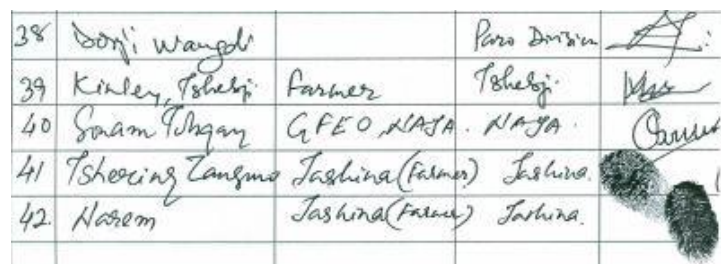 38 Dorji Wangdi Paro Division
39 Kinley, Tshebji Farmer Tshebji.
40 Sonam Tobgay GFEO, NAJA. NAJA.
41 Tshering Zangmo Jashina (Farmer) Jashina.
42. Narem Jashina (Farmer) Jashina.